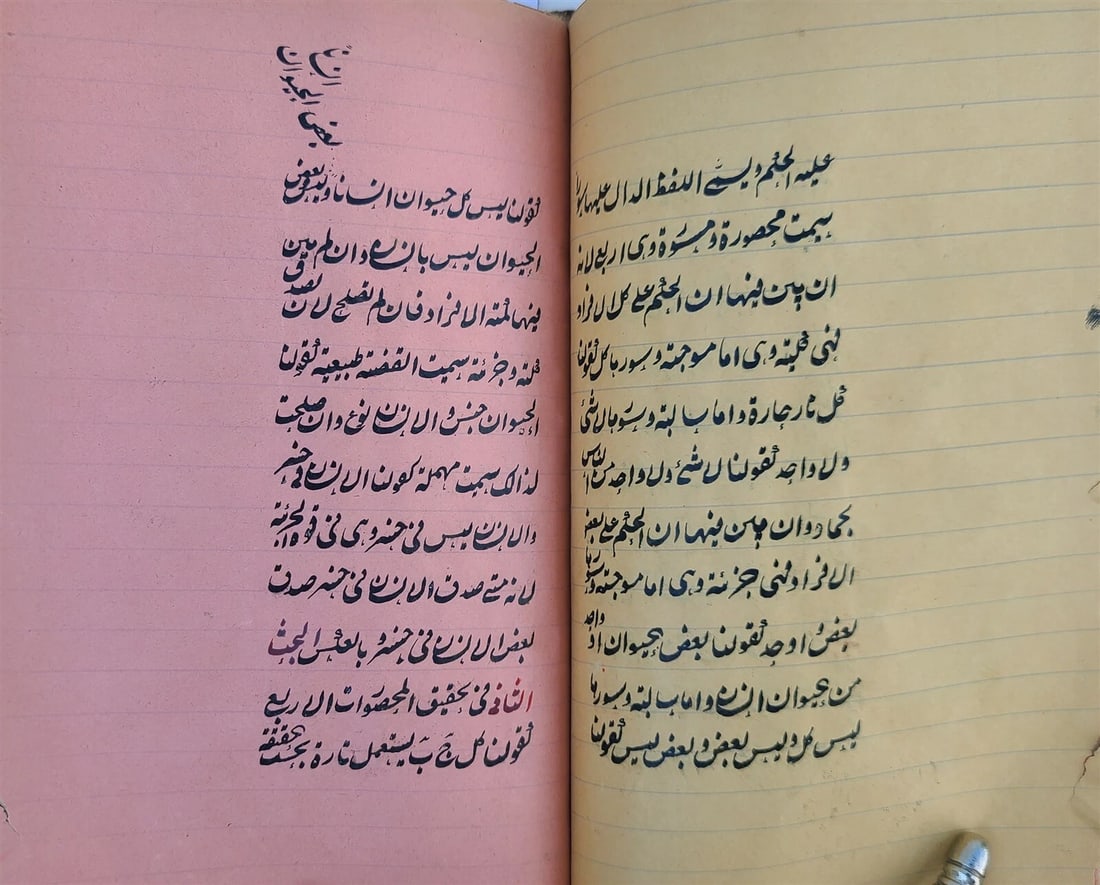 عليه الحكم ويسمى اللفظ الدال عليها سورا
سميت محصورة ومسورة وهى اربع لانه
ان بين فيها ان الحكم على كل الافراد
فهى كلية وهى اما موجبة وسورها كل كقولنا
كل نار حارة واما سالبة وسورها لاشئ
ولا واحد كقولنا لا شئ ولا واحد من الناس
بجماد وان بين فيها ان الحكم على بعض
الافراد فهى جزئية وهى اما موجبة وسورها
بعض و واحد كقولنا بعض الحيوان او واحد
من الحيوان انسان واما سالبة وسورها
ليس كل وليس بعض وبعض ليس كقولنا
بعض الحيوان
انسان
كقولنا ليس كل حيوان انسانا وليس بعض
الحيوان ليس بانسان وان لم يبين
فيها كمية الافراد فان لم تصلح لان تصدق
كلية وجزئية سميت القضية طبيعية كقولنا
الحيوان جنس والانسان نوع وان صلحت
لذالك سميت مهملة كقولنا الانسان فى خسر
والانسان ليس فى خسر وهى فى قوة الجزئية
لانه متى صدق الانسان فى خسر صدق
بعض الانسان فى خسر وبالعكس البحث
الثانى فى تحقيق المحصورات الاربع
كقولنا كل ج ب يستعمل تارة بحسب حقيقة